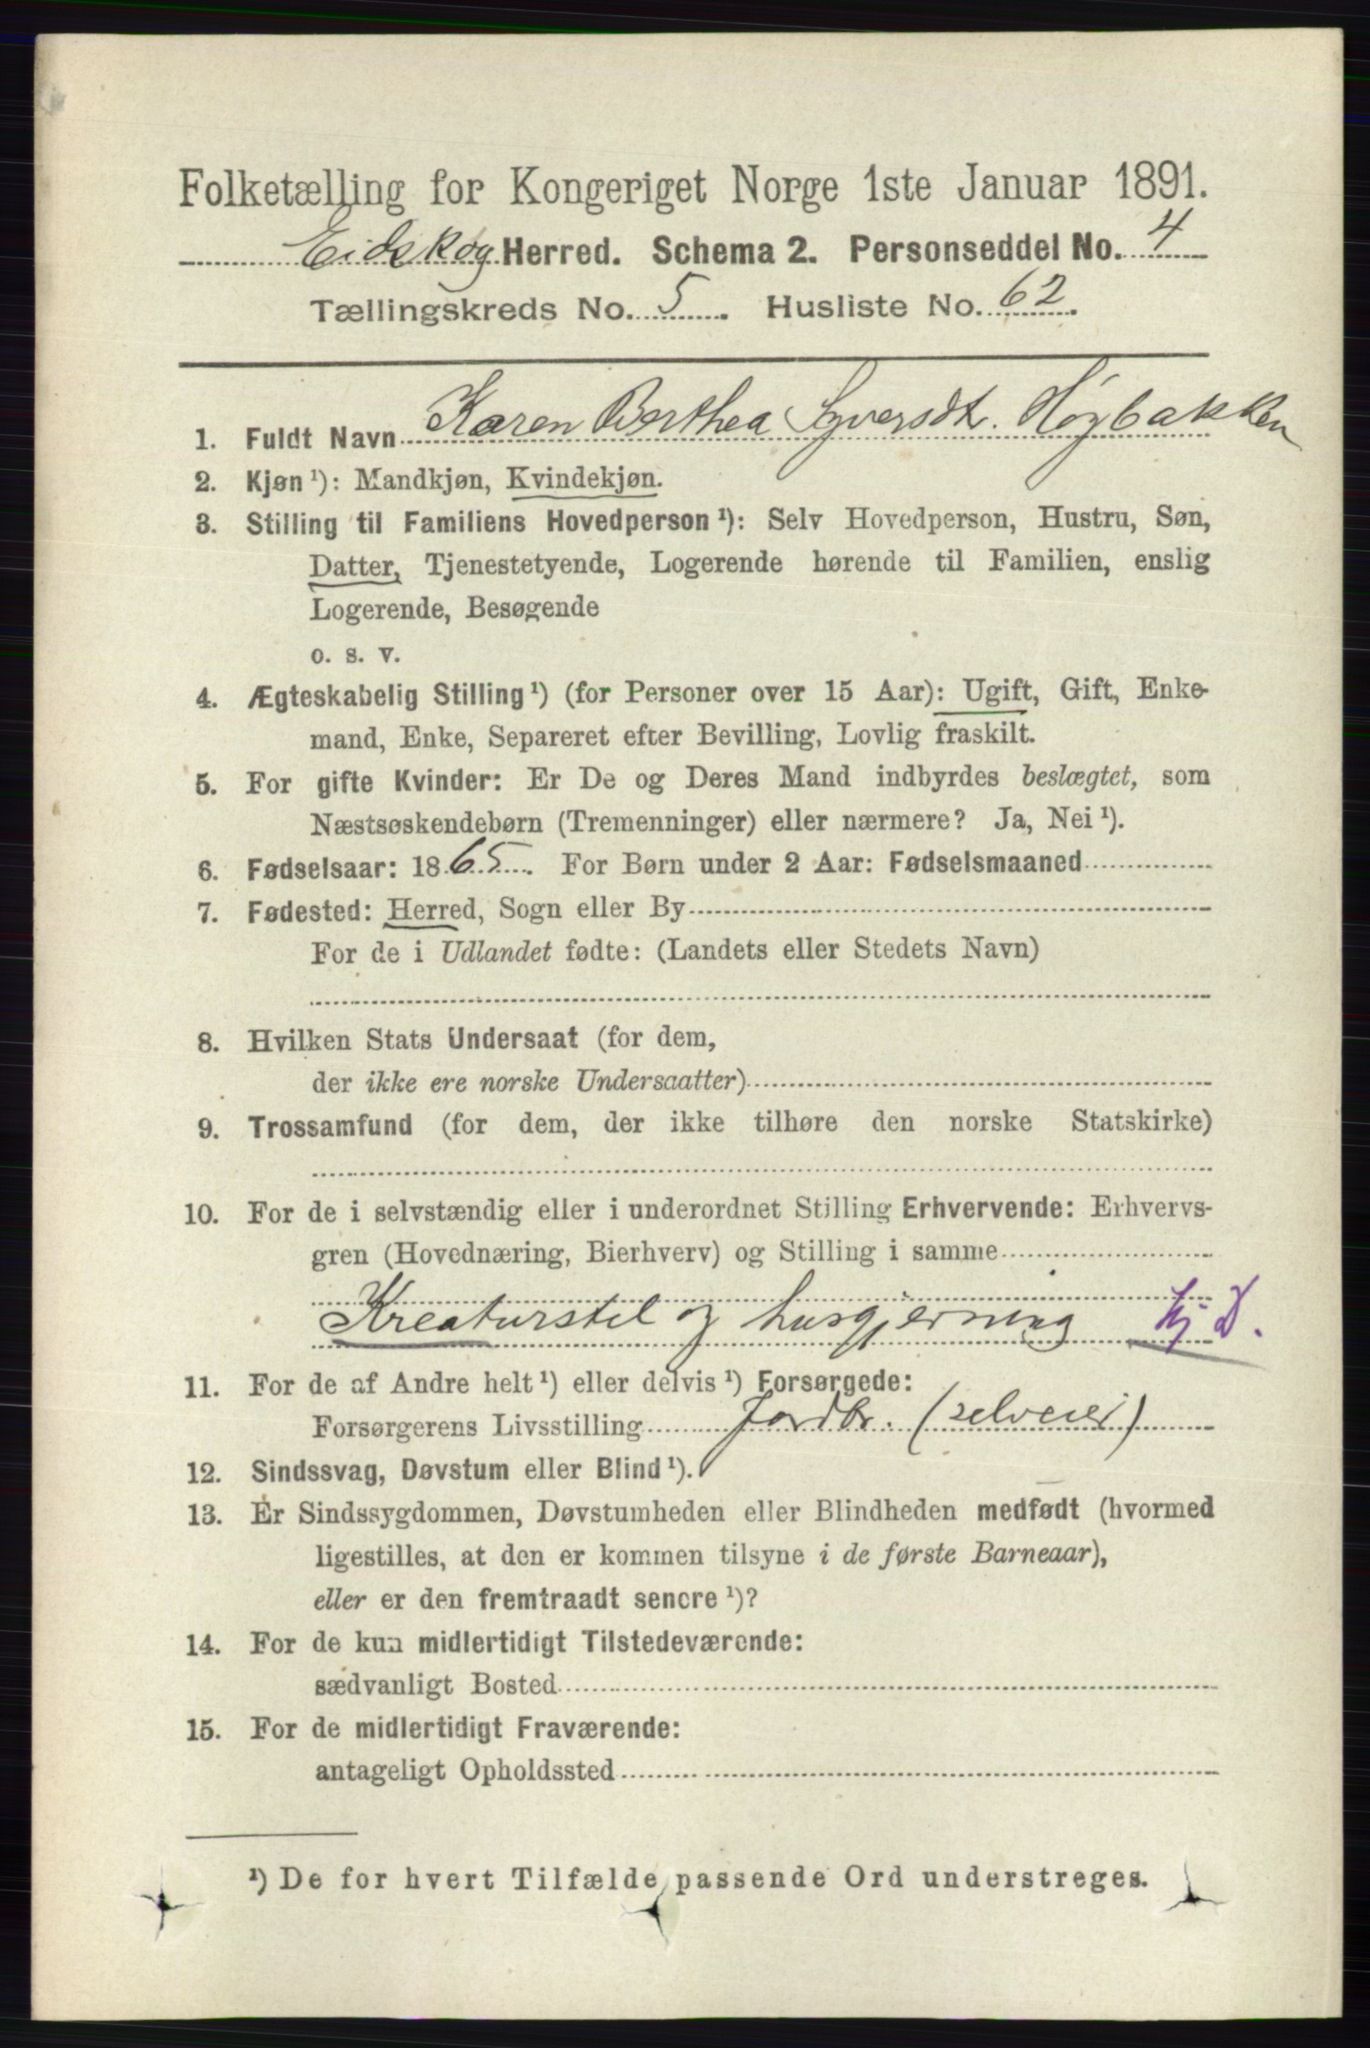 Folketælling for Kongeriget Norge 1ste Januar 1891.
Eidskog Herred. Schema 2. Personseddel No. 4
Tællingskreds No. 5. Husliste No. 62.
1. Fuldt Navn Karen Berthea Syversdt. Høgbakken
2. Kjøn ¹): Mandkjøn, Kvindekjøn.
3. Stilling til Familiens Hovedperson ¹): Selv Hovedperson, Hustru, Søn,
Datter, Tjenestetyende, Logerende hørende til Familien, enslig
Logerende, Besøgende
o. s. v.
4. Ægteskabelig Stilling ¹) (for Personer over 15 Aar): Ugift, Gift, Enke-
mand, Enke, Separeret efter Bevilling, Lovlig fraskilt.
5. For gifte Kvinder: Er De og Deres Mand indbyrdes beslægtet, som
Næstsøskendebørn (Tremenninger) eller nærmere? Ja, Nei ¹).
6. Fødselsaar: 1865. For Børn under 2 Aar: Fødselsmaaned
7. Fødested: Herred, Sogn eller By
For de i Udlandet fødte: (Landets eller Stedets Navn)
8. Hvilken Stats Undersaat (for dem,
der ikke ere norske Undersaatter)
9. Trossamfund (for dem, der ikke tilhøre den norske Statskirke)
10. For de i selvstændig eller i underordnet Stilling Erhvervende: Erhvervs-
gren (Hovednæring, Bierhverv) og Stilling i samme
Kreaturstel og husgjerning hj D.
11. For de af Andre helt ¹) eller delvis ¹) Forsørgede:
Forsørgerens Livsstilling Jordbr. (selveier)
12. Sindssvag, Døvstum eller Blind ¹).
13. Er Sindssygdommen, Døvstumheden eller Blindheden medfødt (hvormed
ligestilles, at den er kommen tilsyne i de første Barneaar),
eller er den fremtraadt senere ¹)?
14. For de kun midlertidigt Tilstedeværende:
sædvanligt Bosted
15. For de midlertidigt Fraværende:
antageligt Opholdssted
¹) De for hvert Tilfælde passende Ord understreges.